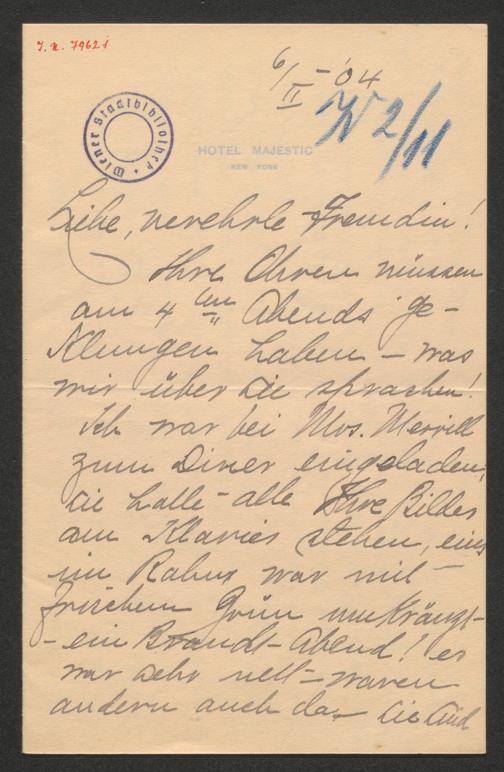 J.N. 79621
6/II - '04
W 2/11
Wiener Stadtbibliothek
HOTEL MAJESTIC
NEW YORK
Liebe, verehrte Freundin!
Ihre Ohren müssen
am 4ten Abends ge-
klungen haben – was
wir über Sie sprachen!
Ich war bei Mrs. Merrill
zum Diner eingeladen,
sie hatte alle Ihre Bilder
am Klavier stehen, eins
im Rahmen war mit
frischem Grün umkränzt –
– ein Brandt-Abend! es
war sehr nett – waren
andern auch da – sie sind